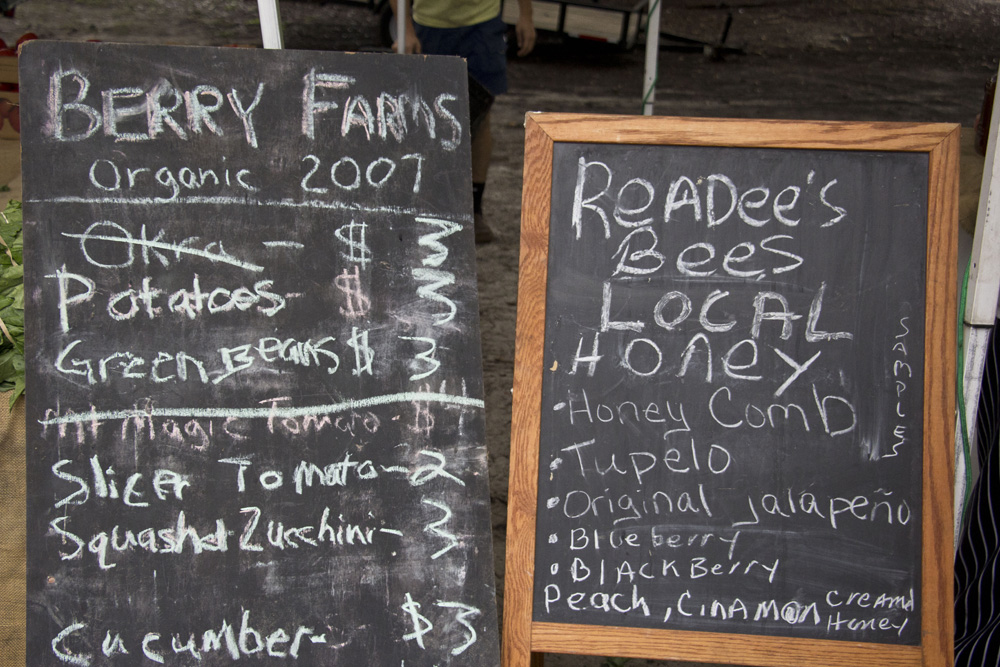 BERRY FARMS
Organic 2007
Okra - $ 3
Potatoes - $ 3
Green Beans $ 3
Magic Tomato - $4
Slicer Tomato - 2
Squash Zucchini - 3
Cucumber - $3
ReADee's
Bees
LOCAL
Honey
• Honey Comb
• Tupelo
• Original jalápeño
• Blueberry
• BlACKBerry
Peach, Cinamon Creamd
Honey
SAMPLES